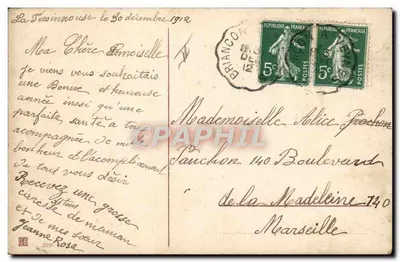 La le 30 décembre 1912
Ma Chère
je viens vous souhaitais
une Bonne et heureuse
année insi qu'une
parfaite santé a tou
acompagnée de mille
bonheur et l'acomplicement
de tout vous désir
Recevez une grosse
caresse de maman
et de mes sœur
Jeanne Rosa
BRIANCON
REPUBLIQUE FRANCAISE
5c
REPUBLIQUE FRANCAISE
5c
Mademoiselle Alice
Pauchon 140 Boulevard
de la Madeleine 140
Marseille
Delcampe